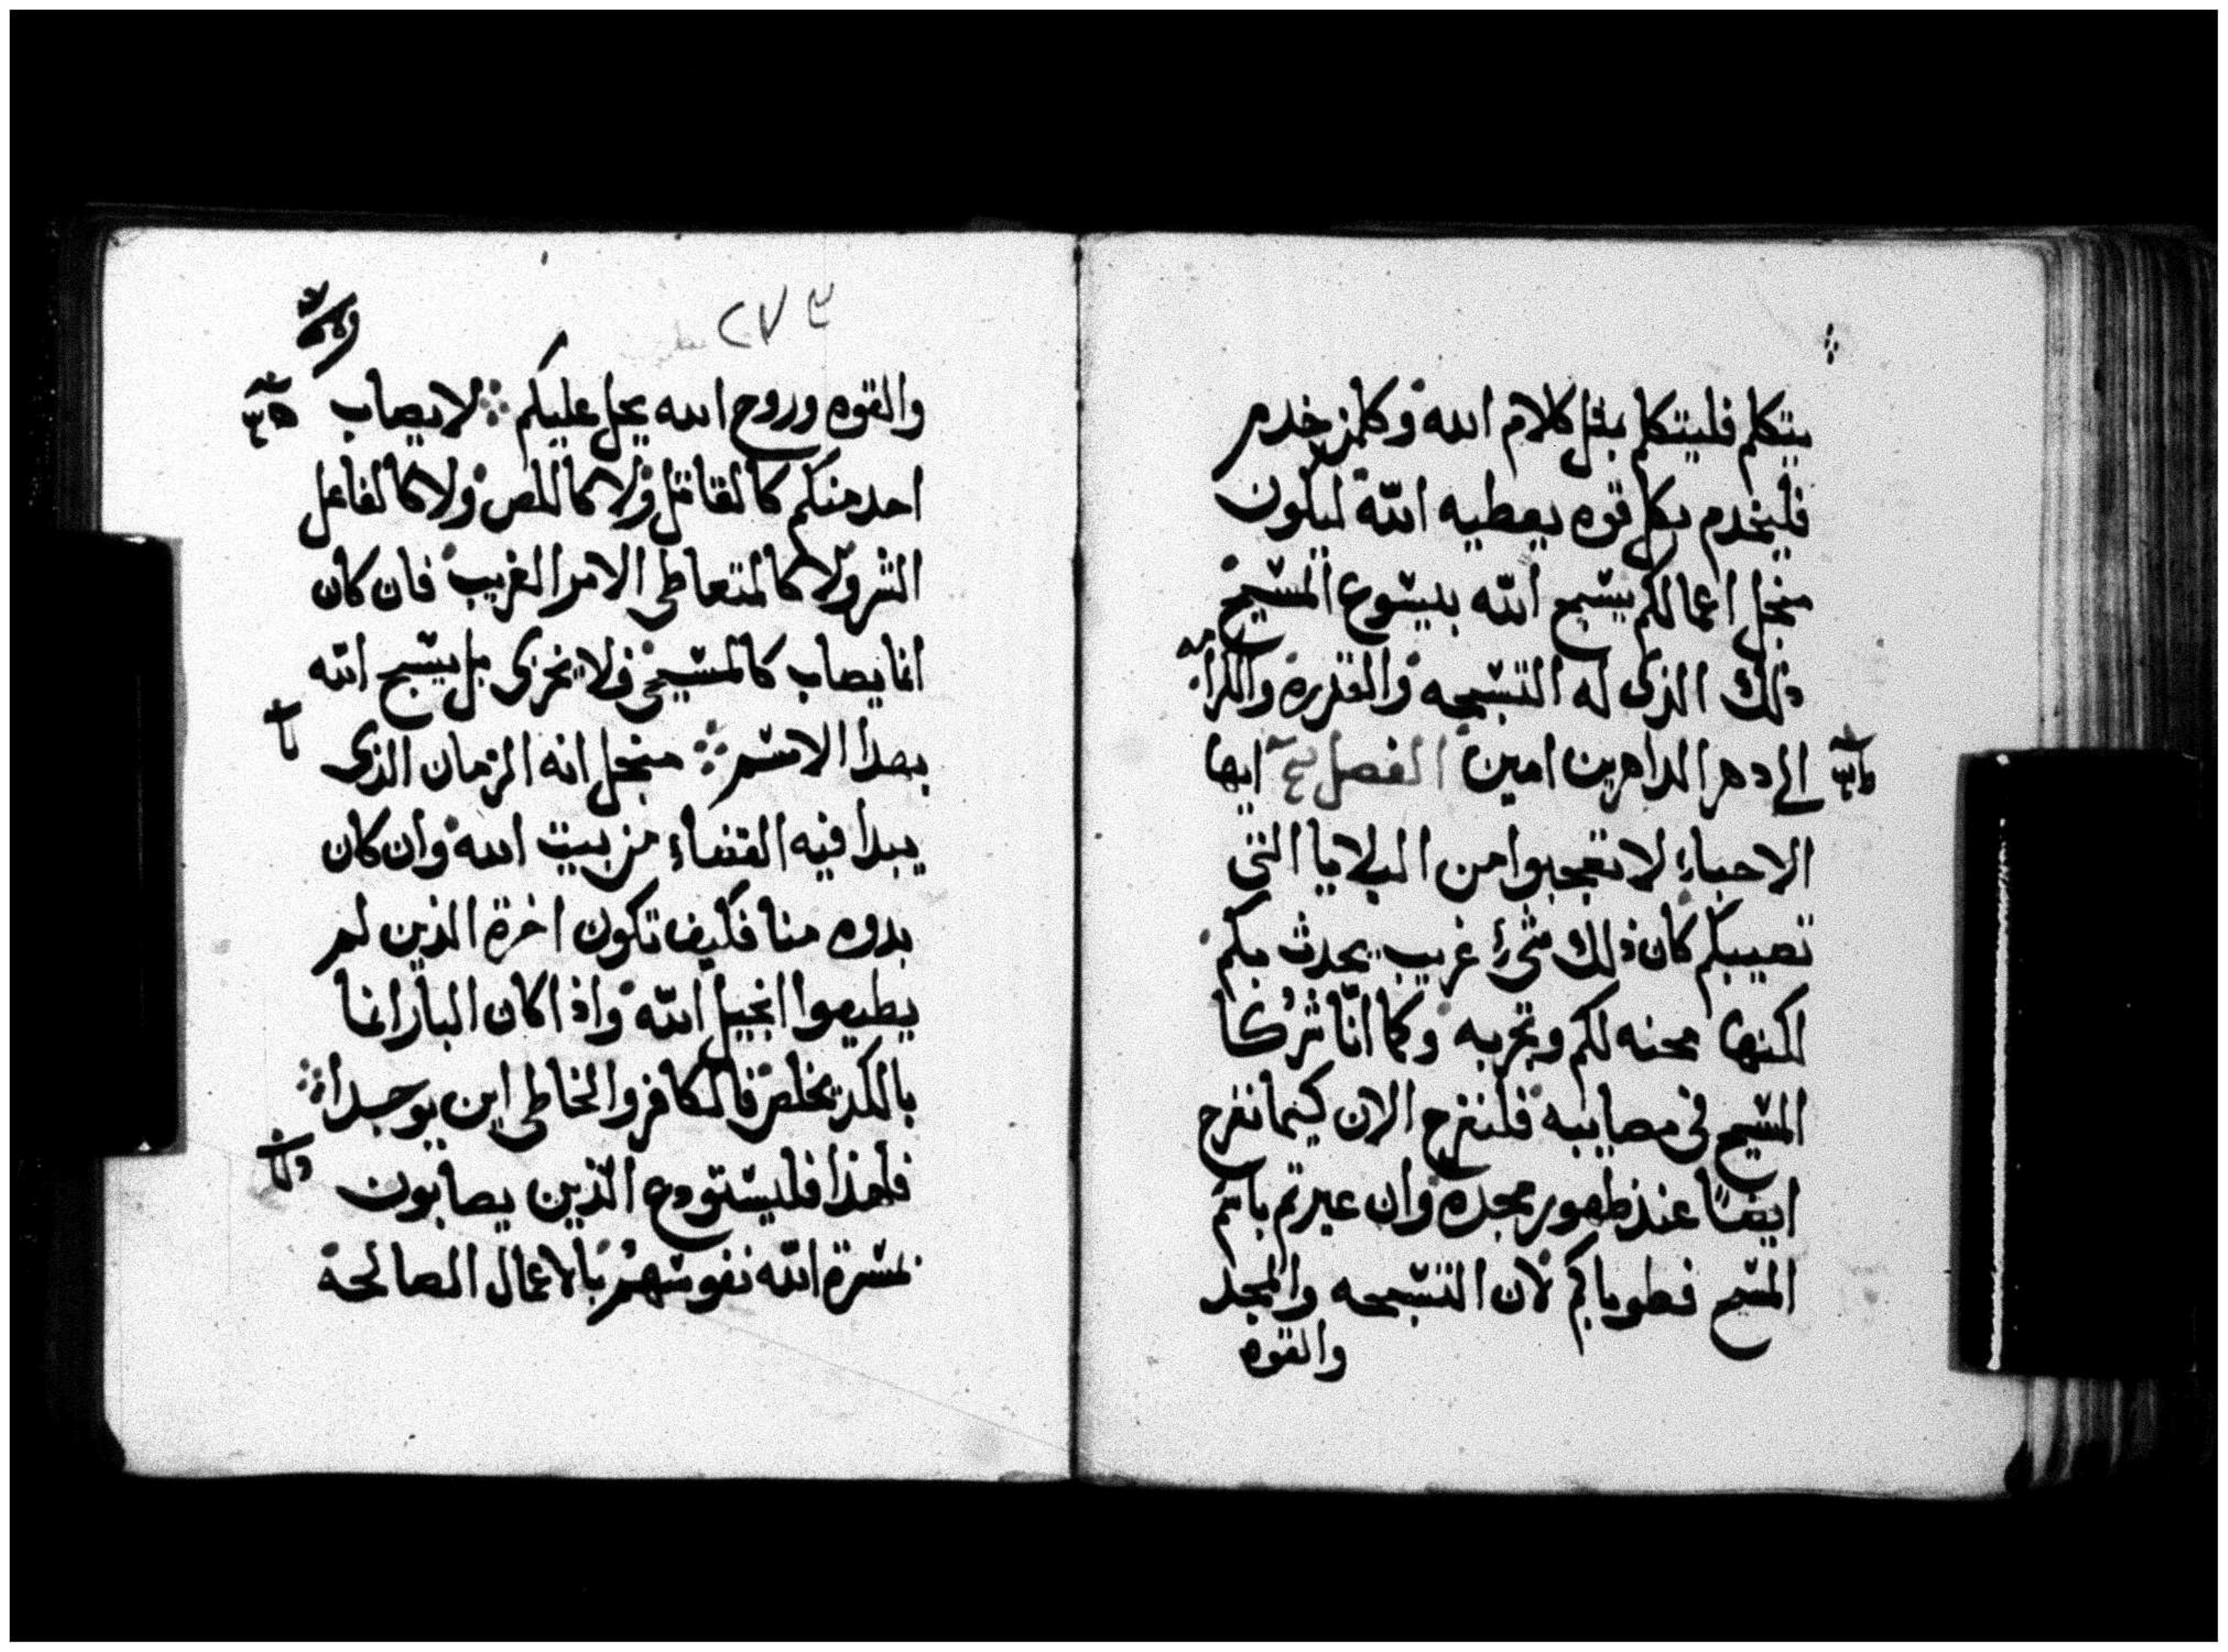 يتكلم فليتكلم مثل كلام الله وكلمن خدم
فليخدم بكل قوه يعطيه الله ليكون
منجل اعمالكم يسبح الله بيسوع المسيح
ذلك الذى له التسبحه والقدره والكرامه
الى دهر الداهرين امين الفصل ايها
الاحباء لا تعجبوا من البلايا التى
تصيبكم كان ذلك شئ غريب يحدث بكم
لكنها محنه لكم وتجربه وكما انا شركا
المسيح فى مصايبه فلنفرح الان كيما نفرح
ايضًا عند ظهور مجده وان عيرتم باسم
المسيح فطوباكم لان التسبحه والمجد
والقوه
٢٧٣
والقوه وروح الله يحل عليكم لا يصاب
احد منكم كالقاتل ولا كاللص ولا كالفاعل
الشر ولا كالمتعاطى الامر الغريب فان كان
انما يصاب كالمسيحى فلا يخزى بل يسبح الله
بهدا الاسم منجل انه الزمان الذى
يبدا فيه القضاء من بيت الله وان كان
بدوه منا فكيف تكون اخرة الذين لم
يطيعوا انجيل الله واذا كان البار انما
بالكد يخلص فالكافر والخاطى اين يوجدا
فلهذا فليستودع الذين يصابون
لمسرة الله نفوسهم بالاعمال الصالحة